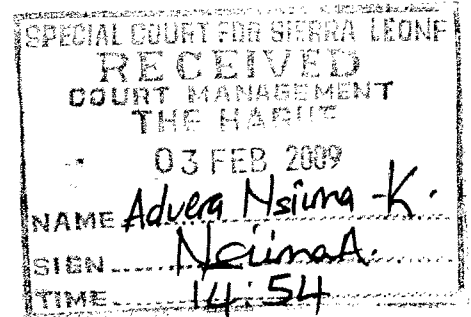 SPECIAL COURT FOR SIERRA LEONE
RECEIVED
COURT MANAGEMENT
THE HAGUE
03 FEB 2009
NAME Advera Nsiima -K.
SIGN NsiimaA.
TIME 14:54